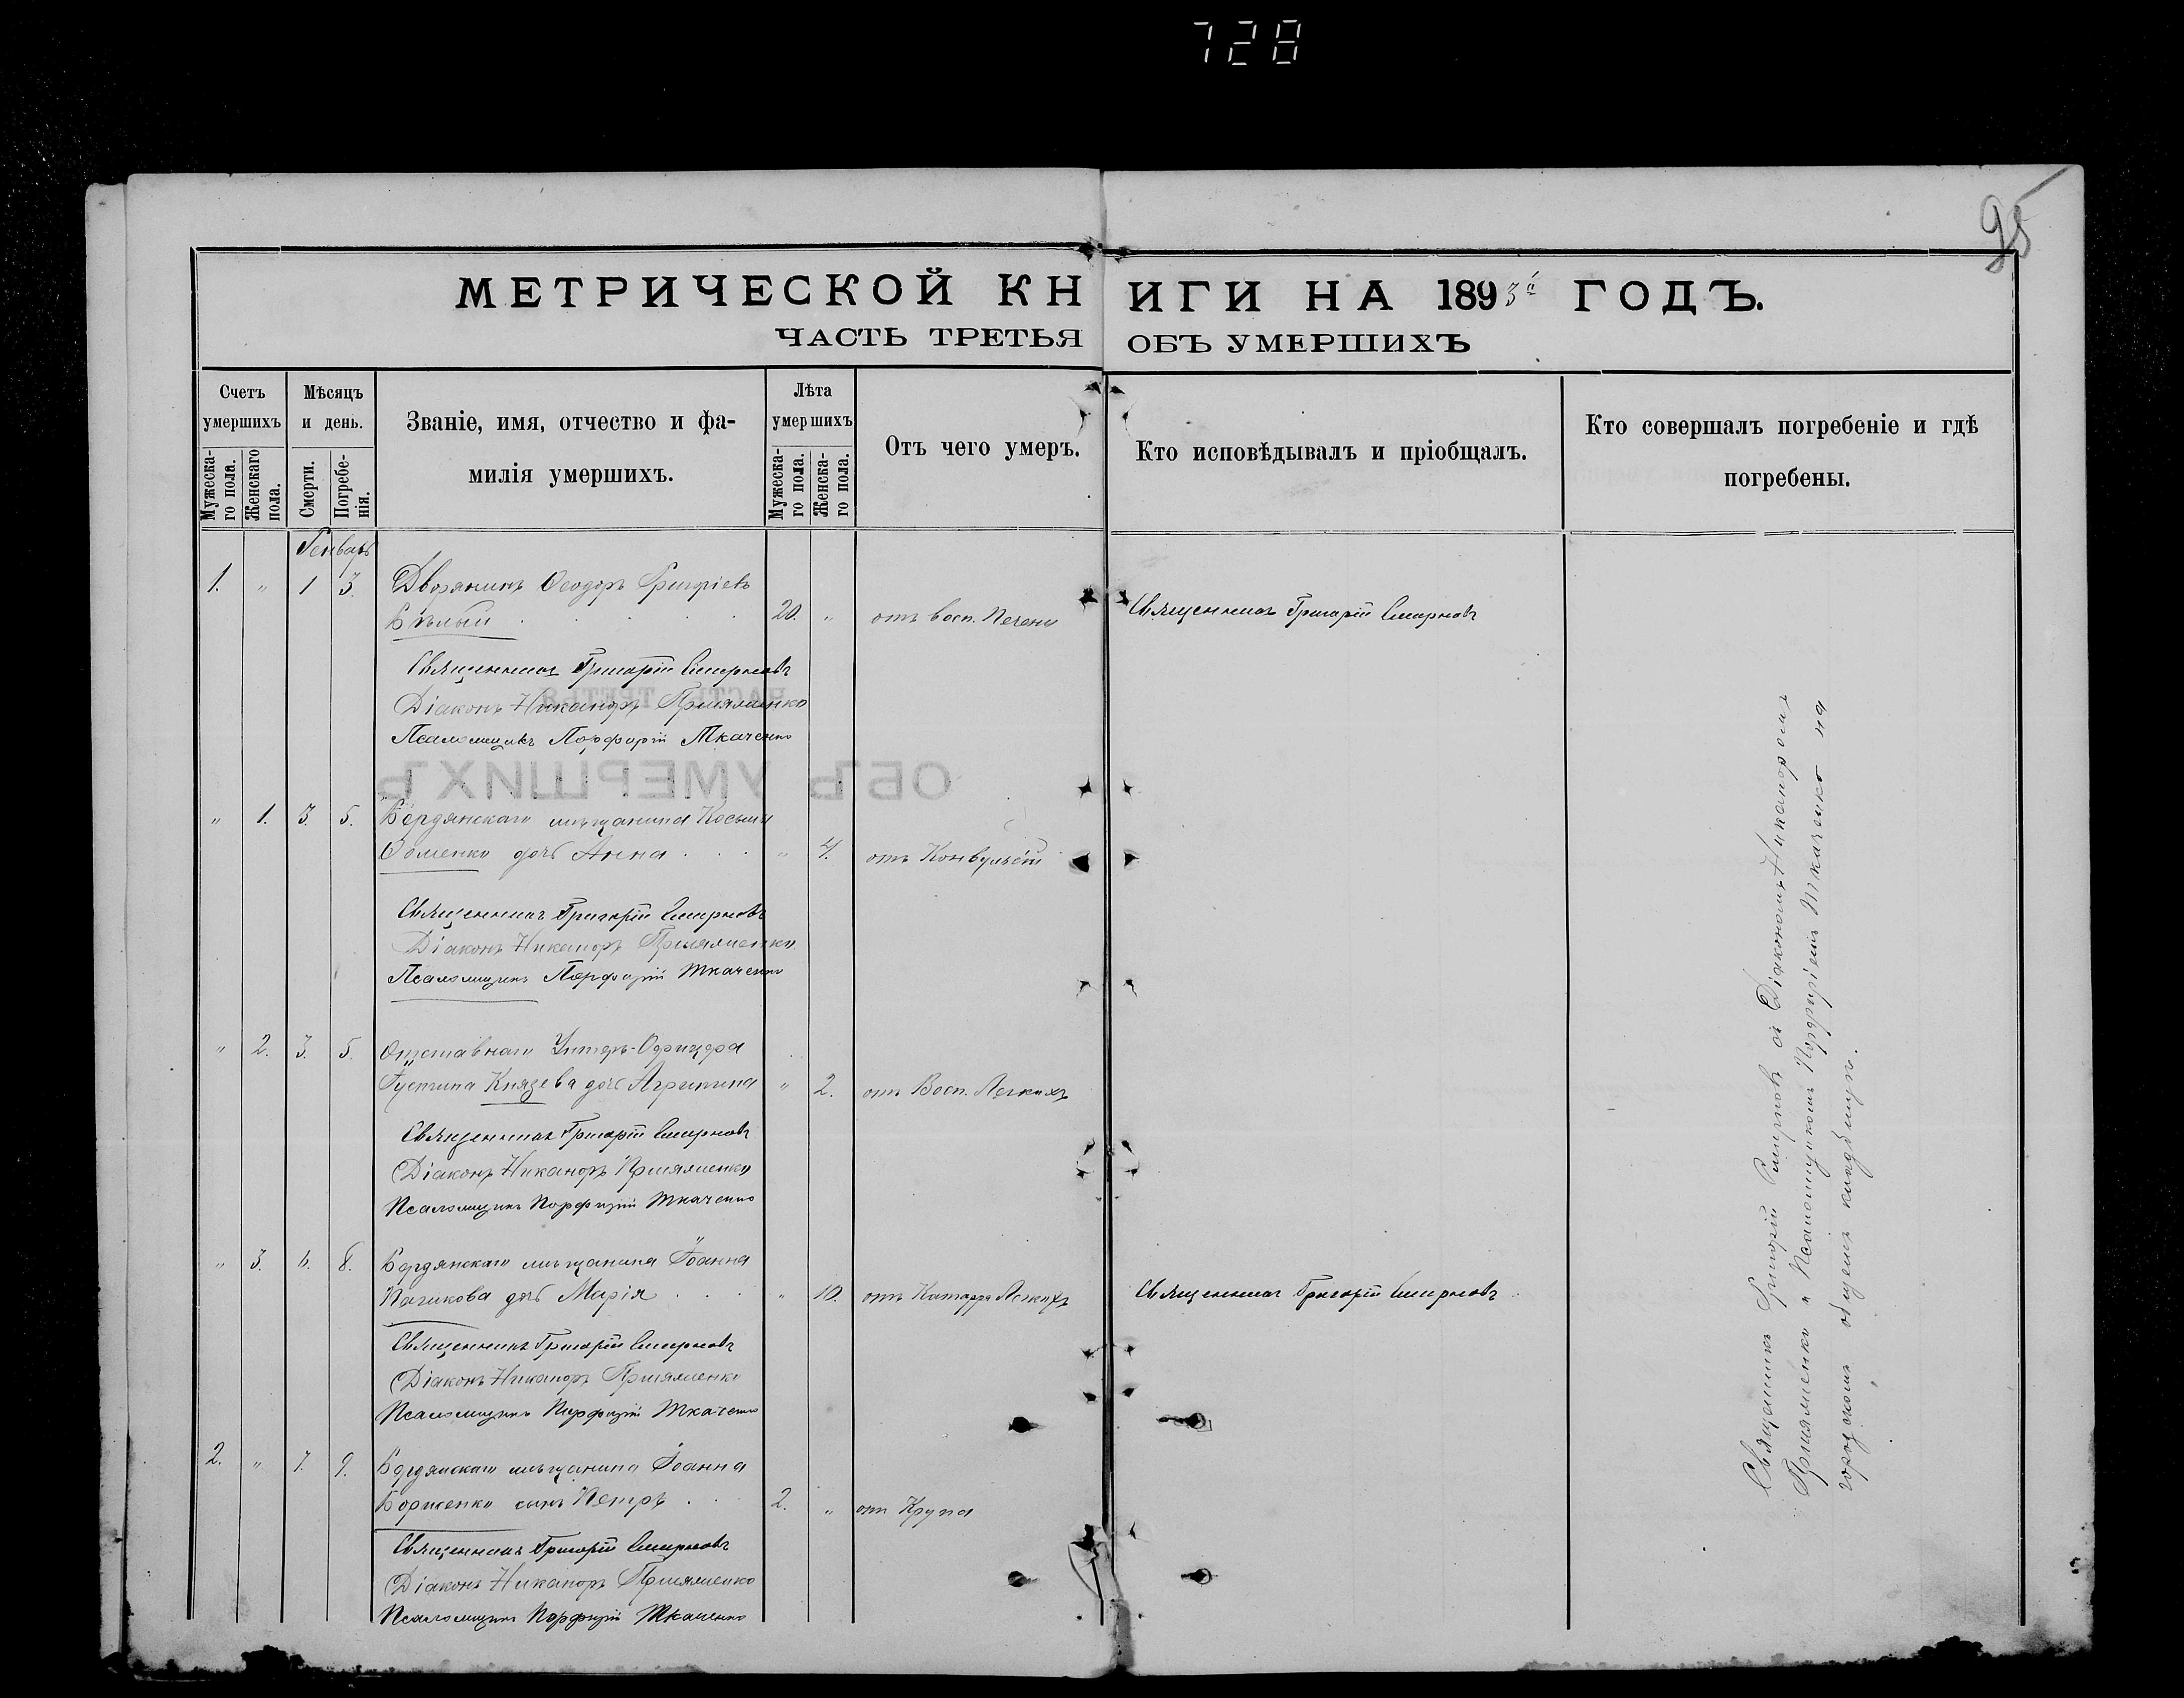 728
95
МЕТРИЧЕСКОЙ КНИГИ НА 1893й ГОДЪ.
ЧАСТЬ ТРЕТЬЯ ОБЪ УМЕРШИХЪ
Счетъ умершихъ
Мужеска-
го пола.
Женскаго
пола.
Мѣсяцъ и день.
Смерти.
Погребе-
нія.
Званіе, имя, отчество и фа-
милія умершихъ.
Лѣта умершихъ
Мужеска-
го пола.
Женска-
го пола.
Отъ чего умеръ.
Кто исповѣдывалъ и пріобщалъ.
Кто совершалъ погребеніе и гдѣ
погребены.
Генварь
1. " 1 3. Дворянинъ Ѳеодоръ Григоріевъ
Бѣлый 20. " отъ восп. Печени Священникъ Григорій Смирновъ
Священникъ Григорій Смирновъ
Діаконъ Никаноръ
Псаломщикъ Порфирій Ткаченко
" 1. 3. 5. Бердянскаго мѣщанина Косьмы
Ѳоменко дочь Анна " 4. отъ Конвульсій
Священникъ Григорій Смирновъ
Діаконъ Никаноръ
Псаломщикъ Порфирій Ткаченко
" 2. 3. 5. Отставнаго Унтеръ-Офицера
Іустина Князева дочь Агрипина " 2. отъ Восп. Легкихъ
Священникъ Григорій Смирновъ
Діаконъ Никаноръ
Псаломщикъ Порфирій Ткаченко
" 3. 6. 8. Бердянскаго мѣщанина Іоанна
дочь Марія " 10. отъ Катарра Легкихъ Священникъ Григорій Смирновъ
Священникъ Григорій Смирновъ
Діаконъ Никаноръ
Псаломщикъ Порфирій Ткаченко
2. " 7. 9. Бердянскаго мѣщанина Іоанна
Борисенко сынъ Петръ 2. " отъ Крупа
Священникъ Григорій Смирновъ
Діаконъ Никаноръ
Псаломщикъ Порфирій Ткаченко
Священникъ Григорій Смирновъ съ Діакономъ Никаноромъ
и Псаломщикомъ Порфиріемъ Ткаченко на
городскомъ общемъ кладбищѣ.